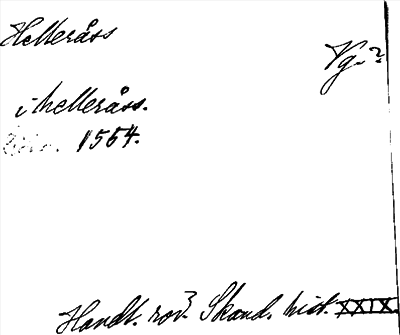 Helleråss
Vg.?
i helleråss.
1564.
Handl. rör. Skand. hist. XXIX